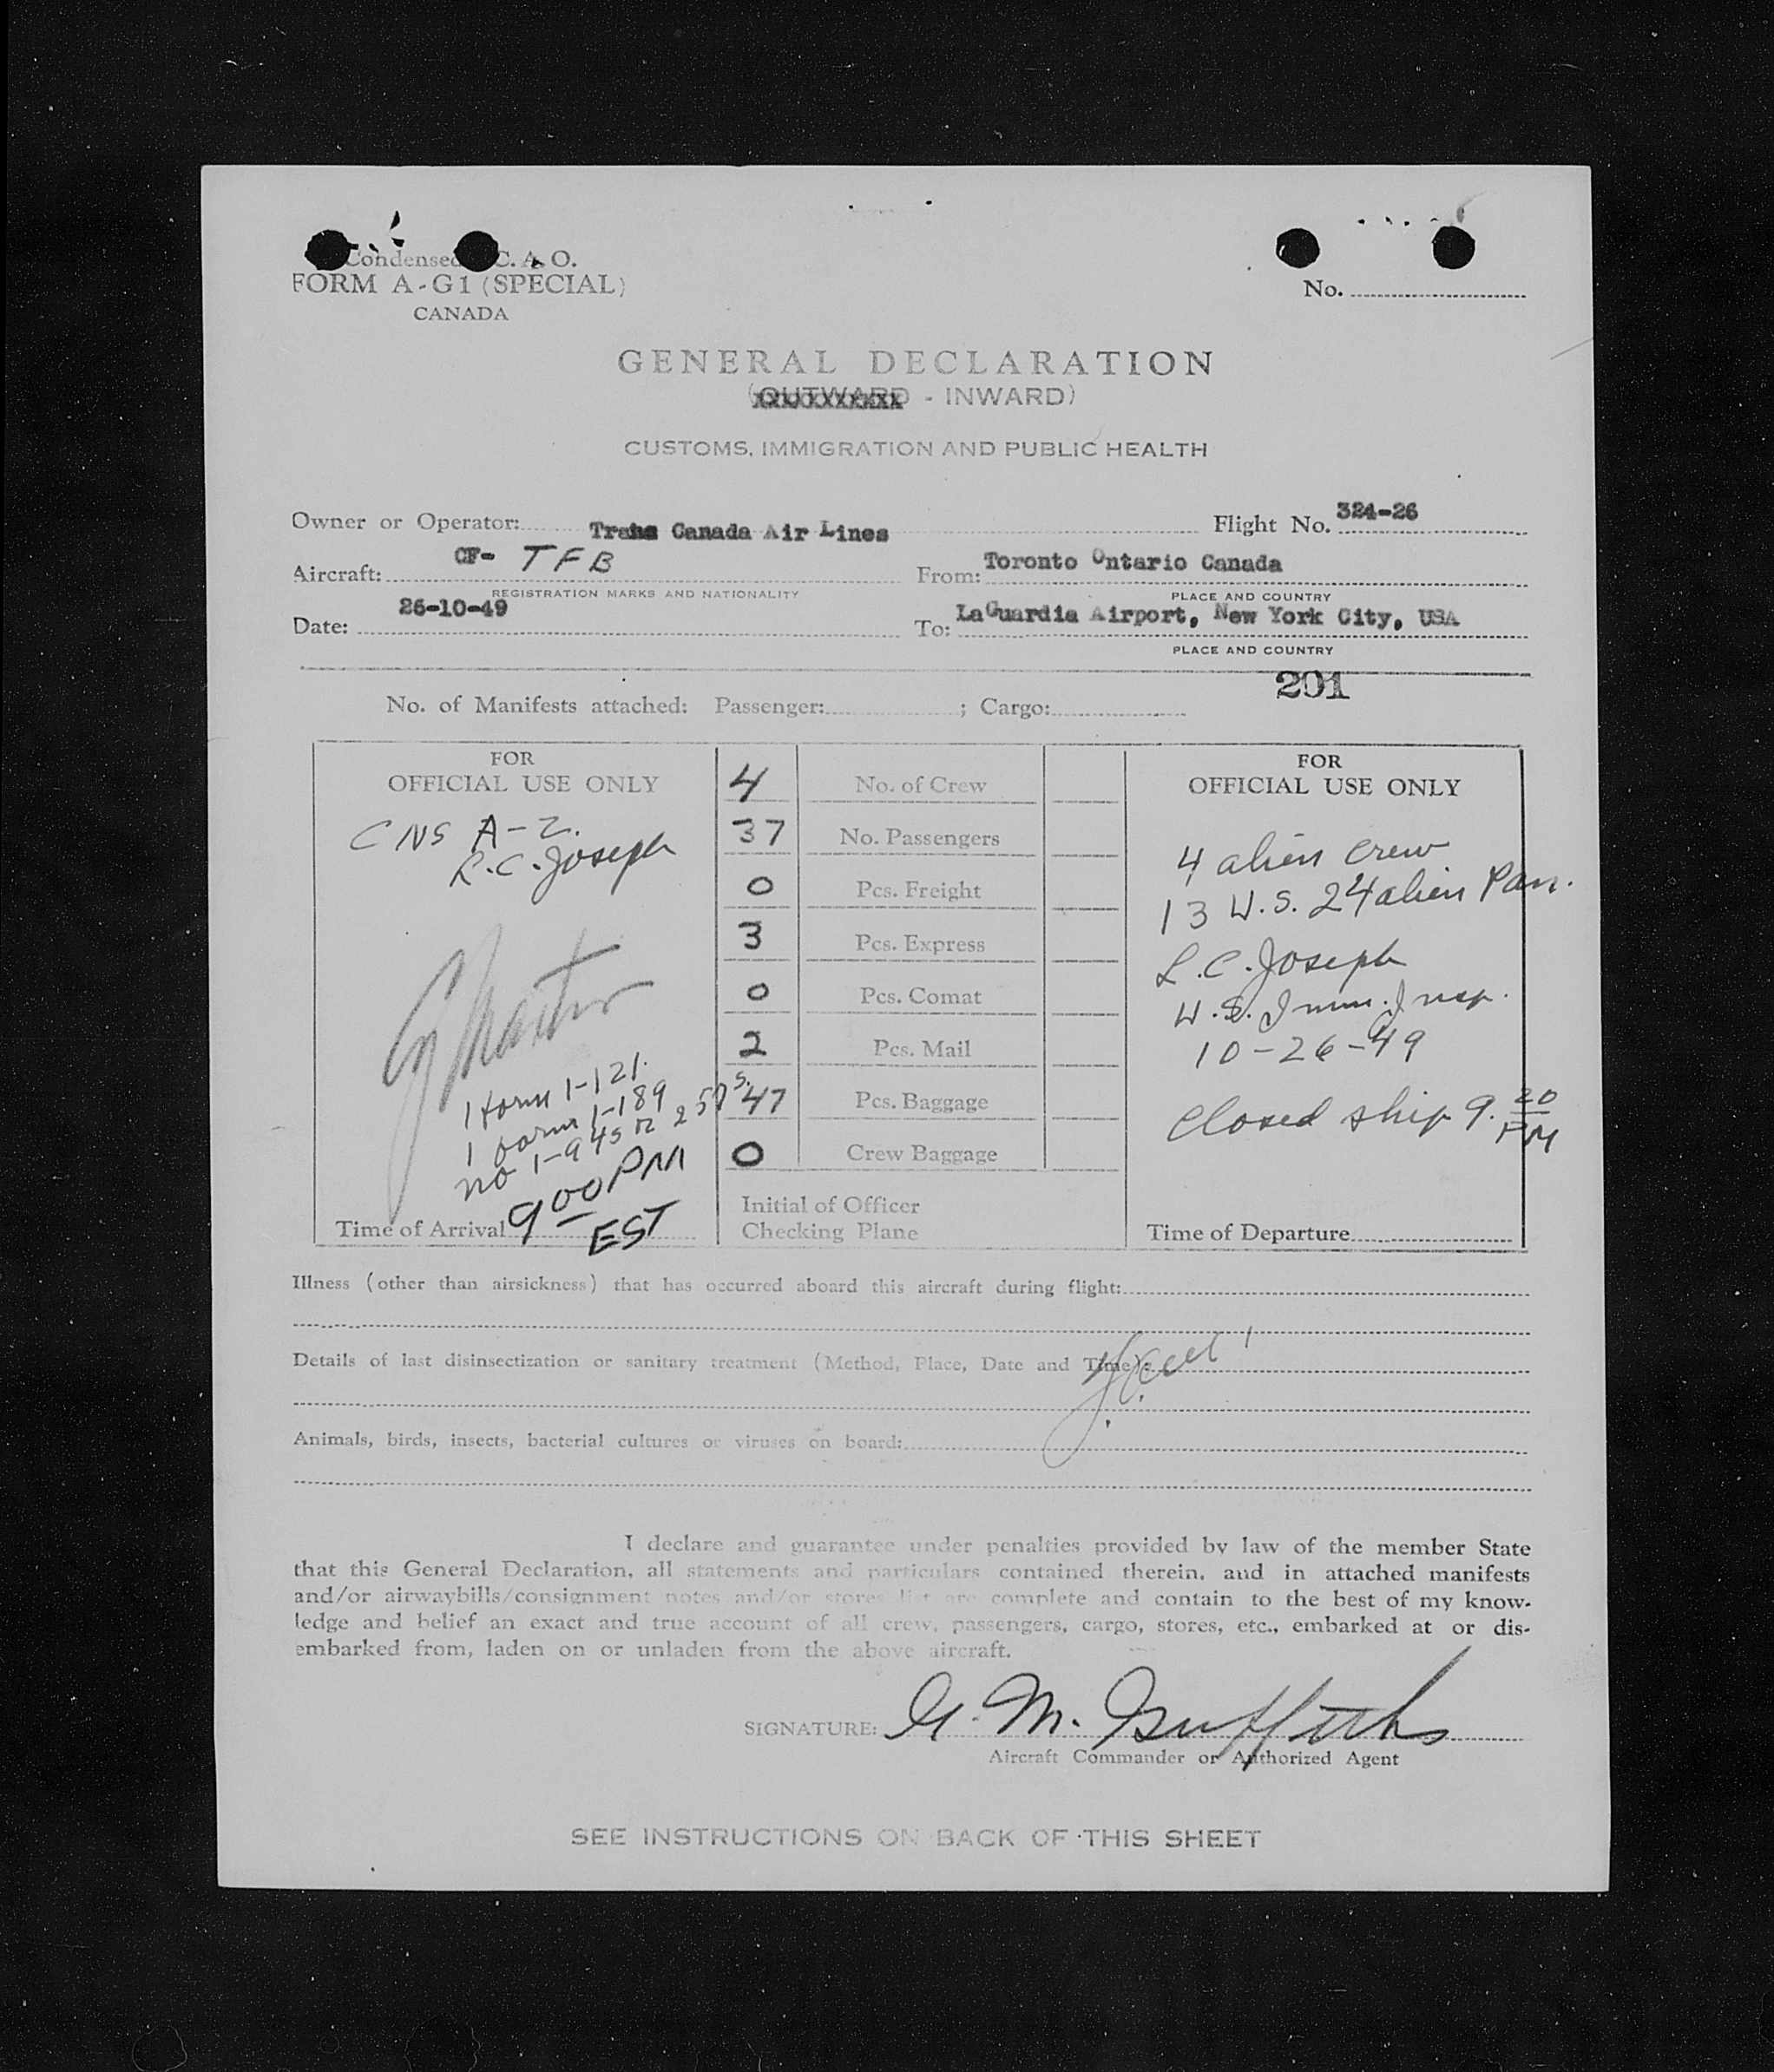 Condensed C. A. O.
FORM A-G1 (SPECIAL)
CANADA
No.
GENERAL DECLARATION
(OUTWARD - INWARD)
CUSTOMS, IMMIGRATION AND PUBLIC HEALTH
Owner or Operator: Trans Canada Air Lines Flight No. 324-26
Aircraft: CF- TFB From: Toronto Ontario Canada
REGISTRATION MARKS AND NATIONALITY PLACE AND COUNTRY
Date: 26-10-49 To: LaGuardia Airport, New York City, USA
PLACE AND COUNTRY
201
No. of Manifests attached: Passenger: ; Cargo:
FOR
OFFICIAL USE ONLY
CNS A-2.
L.C. Joseph
1 form 1-121.
1 form 1-189
no 1-94s
Time of Arrival 9 00 PM
EST
4 No. of Crew
37 No. Passengers
0 Pcs. Freight
3 Pcs. Express
0 Pcs. Comat
2 Pcs. Mail
47 Pcs. Baggage
0 Crew Baggage
Initial of Officer
Checking Plane
FOR
OFFICIAL USE ONLY
4 alien crew
13 U.S. 24 alien Pass.
L.C. Joseph
U.S. Imm. Insp.
10-26-49
Closed ship 9. 20
PM
Time of Departure
Illness (other than airsickness) that has occurred aboard this aircraft during flight:
Details of last disinsectization or sanitary treatment (Method, Place, Date and Time):
Animals, birds, insects, bacterial cultures or viruses on board:
I declare and guarantee under penalties provided by law of the member State
that this General Declaration, all statements and particulars contained therein, and in attached manifests
and/or airwaybills/consignment notes and/or stores list are complete and contain to the best of my know-
ledge and belief an exact and true account of all crew, passengers, cargo, stores, etc., embarked at or dis-
embarked from, laden on or unladen from the above aircraft.
SIGNATURE: G. M. Griffiths
Aircraft Commander or Authorized Agent
SEE INSTRUCTIONS ON BACK OF THIS SHEET